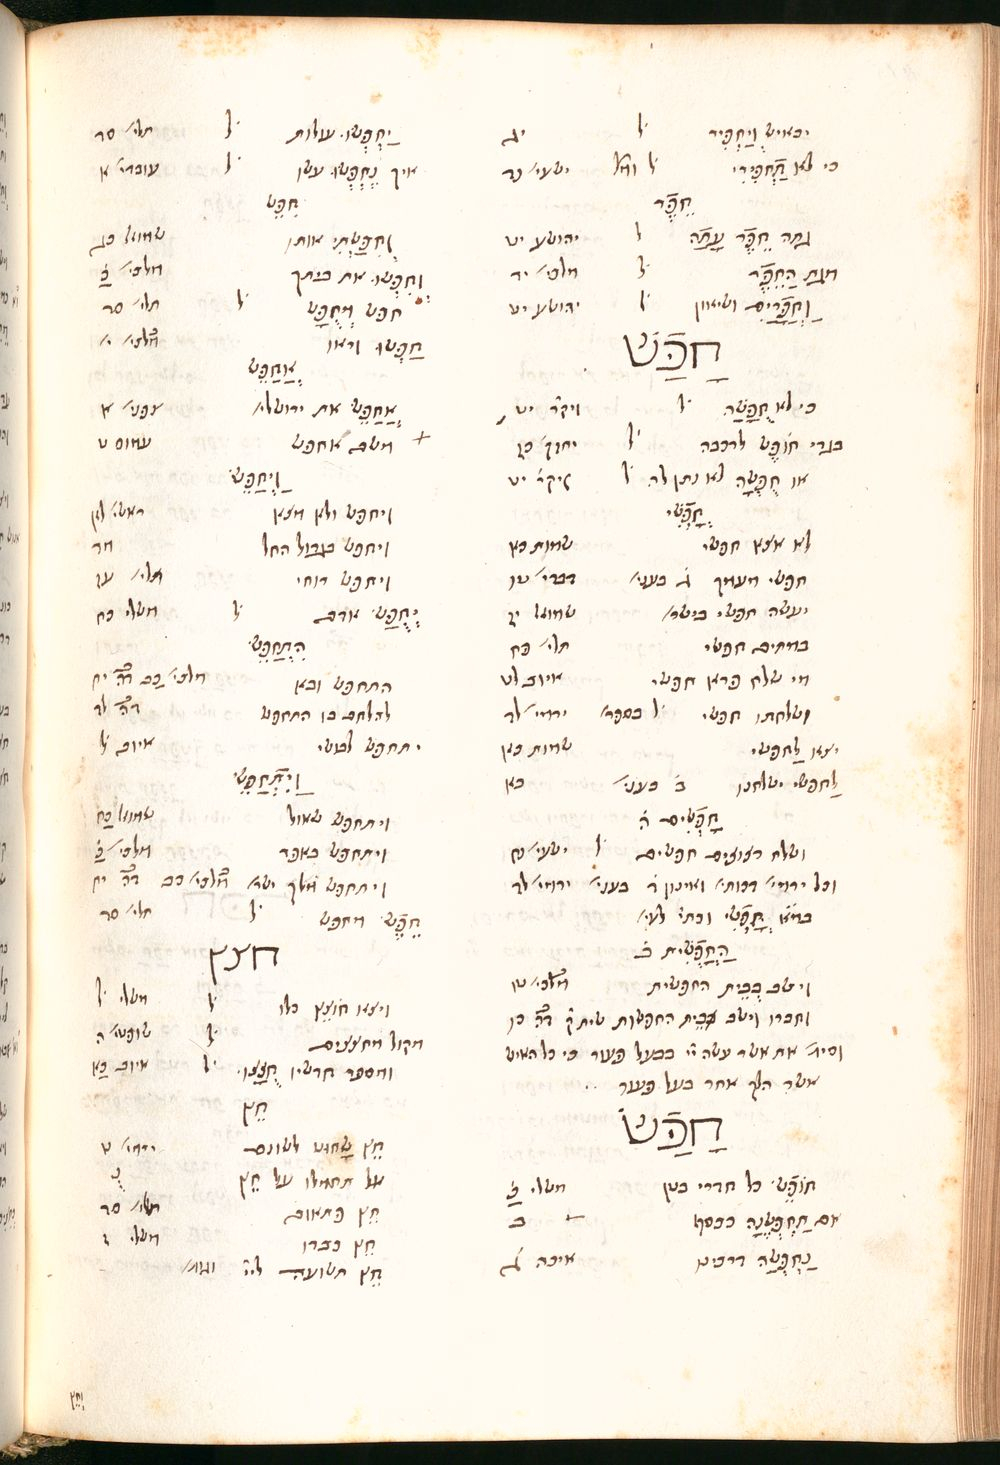 יבאיש וְיַחְפִּיר ל' יג
כי לא תַחְפִּירִי ל' ישעי' נד
חֵפֶר
גִתָּה חֵפֶר עִתָּה ל' יהושע יט
מגת הַחֵפֶר ל' מלכי' יד
וַחֲפָרַיִם ושיאון ל' יהושע יט
חָפַשׁ
כי לא חֻפָּשָׁה ל' ויקר' יט
בגדי חֹפֶשׁ לרכבה ל' יחזק' כז
או חֻפְשָׁה לא נתן לה ל' ויקר' יט
חָפְשִׁי
לא אצא חפשי שמות כא
חפשי מעמך ג' בעני' דברי' טו
יעשה חפשי בישר' שמואל יז
במתים חפשי תלי' פח
מי שלח פרא חפשי איוב לט
ושלחתו חפשי ל' בספר' ירמי' לד
יצא לַחפשי שמות כא
לַחפשי ישלחנו ב' בעני' כא
חָפְשִׁים ה'
ושלח רצוצים חפשים ל' ישעי' נח
וכל ירמי' דכותי' ואינון ד' בעני' ירמי' לד
חָפְשִׁי וכתי'
הַחָפְשִׁית ב'
וישב בְּבֵית החפשית מלכי' טו
וחברו וישב בבית החפשות ד"ה כו
את אשר עשה יי' בבעל פעור כי כל האיש
אשר הלך אחר בעל פעור
חָפַשׂ
חֹפֵשׂ כל חדרי בטן משלי כ'
אם תַחְפְּשֶׂנָּה ככסף ב
נַחְפְּשָׂה דרכינו איכה ג'
יַחְפְּשׂוּ עולות ל' תלי' סד
איך נֶחְפְּשׂוּ עשו ל' עובדי' א
חִפֵּשׂ
וְחִפַּשְׂתִּי אותו שמואל כג
וְחִפְּשׂוּ את ביתך מלכי' כ'
חפש מְחֻפָּשׂ ל' תלי' סד
חַפְּשׂוּ וראו מלכי' י'
אֲחַפֵּשׂ
אֲחַפֵּשׂ את ירושלי' צפני' א
משם אחפש עמוס ט
וַיְחַפֵּשׂ
ויחפש ולא מצא ראשי' לא
ויחפש בגדול החל מד
ויחפש רוחי תלי' עז
יְחֻפַּשׂ אדם ל' משלי כח
הִתְחַפֵּשׂ
התחפש ובא מלכי' כב ד"ה יח
להלחם בו התחפש ד"ה לה
יתחפש לבושי איוב ל'
וַיִּתְחַפֵּשׂ
ויתחפש שאול שמואל כח
ויתחפש באפר מלכי' כ'
ויתחפש מלך ישר' מלכי' כב ד"ה יח
חֵפֶשׂ מחפש ל' תלי' סד
חצץ
ויצא חוֹצֵץ כלו ל' משלי ל'
מקול מחצצים ל' שופטי' ה
ומספר חדשיו חֻצָּצוּ ל' איוב כא
חֵץ
חֵץ שָׁחוּט לשונם ירמי' ט
אל תחמלו אל חֵץ נ'
חֵץ פתאום תלי' סד
חֵץ כבדו משלי ז
חֵץ תשועה ליי' וגומ'
וְחֵץ